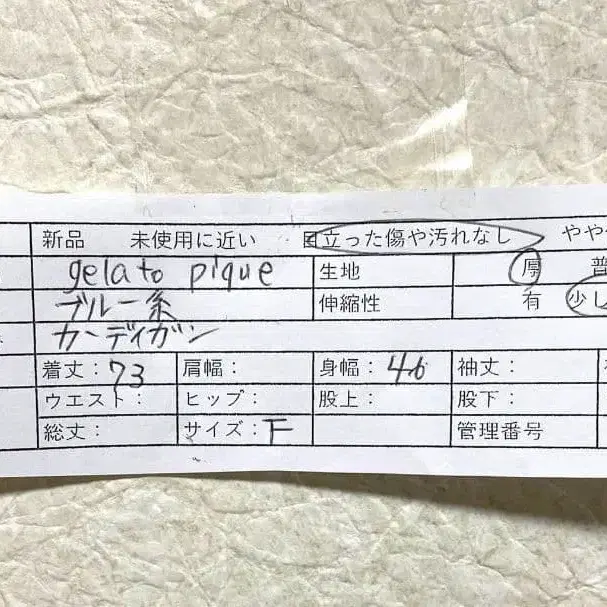 新品 未使用に近い 目立った傷や汚れなし やや
gelato pique 生地 厚 普
ブルー系 伸縮性 有 少し
カーディガン
着丈：73 肩幅： 身幅：46 袖丈：
ウエスト： ヒップ： 股上： 股下：
総丈： サイズ：F 管理番号